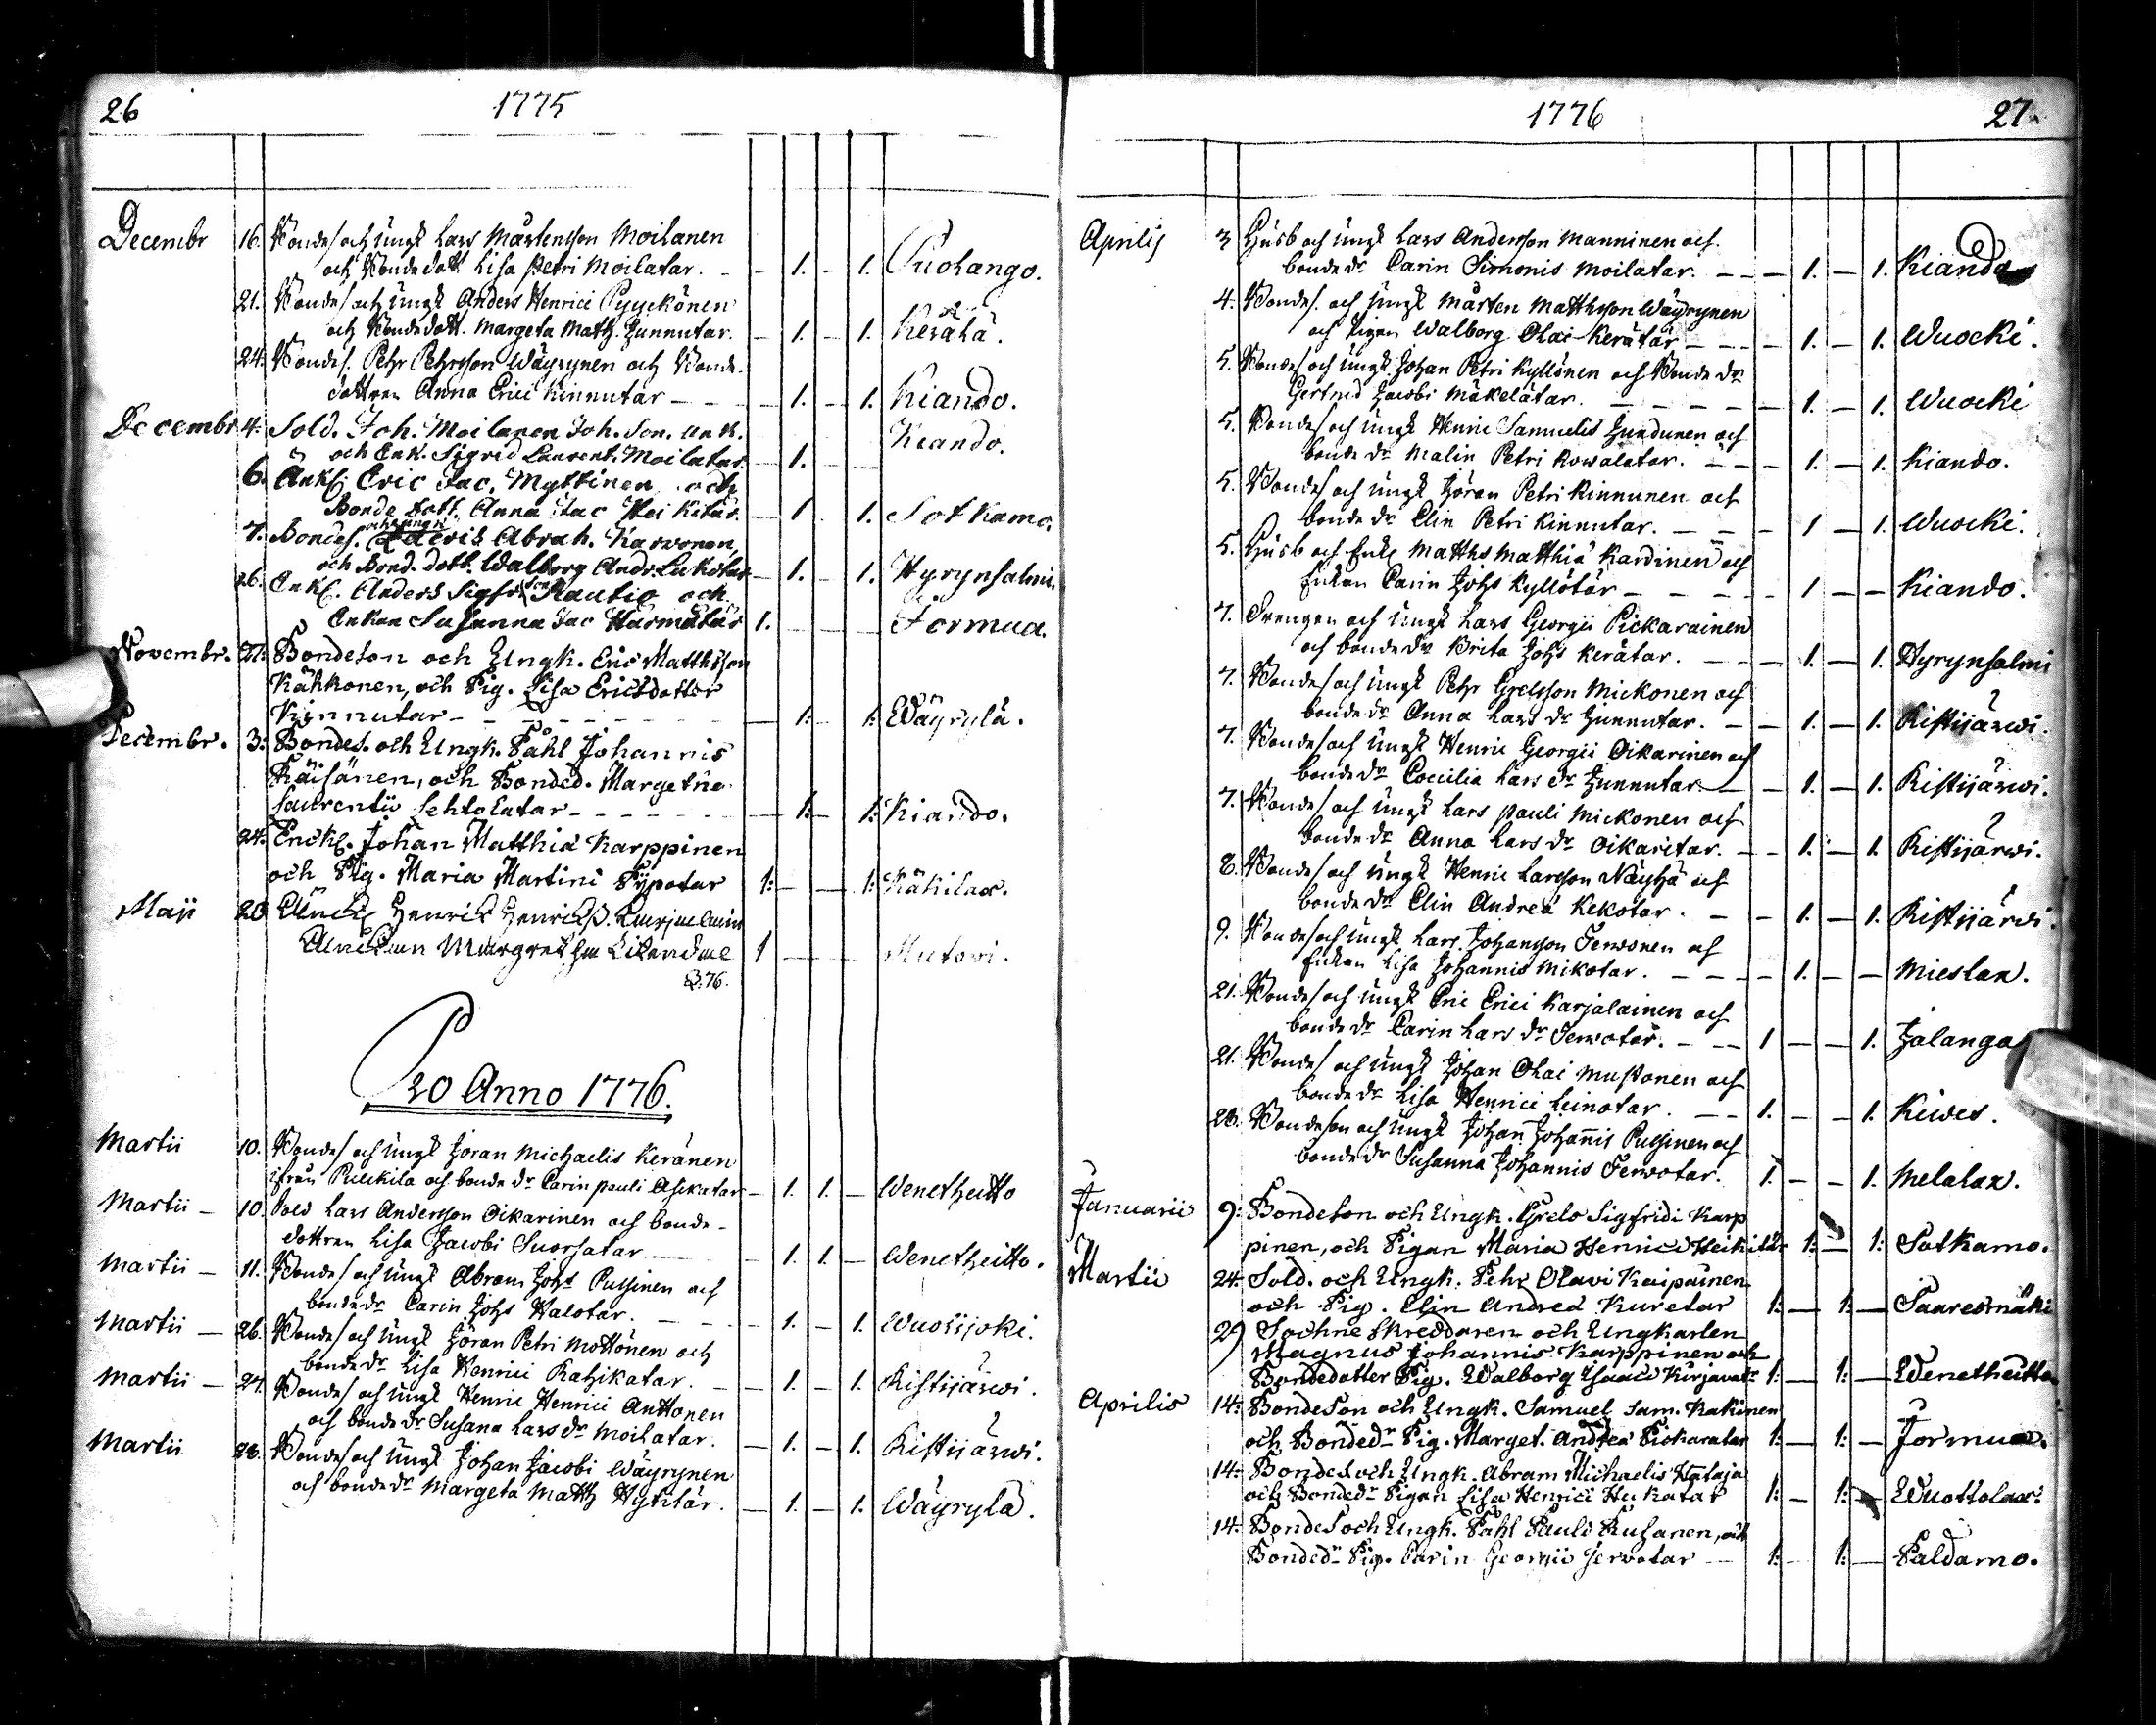 26
1775
Decembr 16. Bondes och Ungk Lars Mårtensson Moilanen
och Bonde dott Lisa Petri Moilatar. — 1. — 1. Puolango.
21. Bondes och Ungk Anders Henrici Pyyckönen
och Bonde dott. Margeta Math. Junnutar. — 1. — 1. Kerälä.
24. Bondes. Pehr Pehrsson Wäyrynen och Bonde-
dottren Anna Erici Kinnutar — — 1. — 1. Kiando.
Decembr 4. Sold. Joh. Moilanen Joh. Son. Enk.
och Enk. Sigrid Laurent. Moilatar. — 1. — — Kiando.
6. Änkl. Eric Jac. Myttinen och
Bonde dott. Anna Jac Heikitär. — 1 — 1. Sotkamo.
7. Bondes. och ungk Lauris Abrah. Karvonen,
och Bond. dott. Walborg Andr. Lukotar — 1. — 1. Hyrynsalmi.
26. Enkl. Anders Sigfr. son Rautio och
Enkan Susanna Jac Härmätär 1. — — — Jormua.
Novembr. 21: Bondeson och Ungk. Eric Matthsson
Kähkonen, och Pig. Lisa Ericsdotter
Kinnutar — — — 1:— 1: Wäyrylä.
Decembr. 3: Bondes. och Ungk. Påhl Johannis
Räisänen, och Bonded. Margetha
Laurentii Lehtolatar — — — 1:— 1: Kiando.
24: Enckl. Johan Matthiæ Karppinen
och Pig. Maria Martini Pypotar 1:— — 1: Käkilax.
Maji 20 Änckl Henrik Henrickss.
Änckan Margretha 1 — — — Mutovi.
76.
20 Anno 1776.
Martii 10. Bondes och Ungk Jöran Michaelis Keränen
ifrån Puckila och bonde dr Carin Pauli Asikatar — 1. 1. — Wenetheitto
Martii — 10. Sold Lars Andersson Oikarinen och bonde-
dottren Lisa Jacobi Suorsatar. — 1. 1. — Wenetheitto.
Martii — 11. Bondes och Ungk Abram Johs Pussinen och
bonde dr Carin Johs Halotar. — — 1. — 1. Wuolijoki.
Martii — 26. Bondes och Ungk Jöran Petri Mottönen och
bonde dr Lisa Henrici Katzikatar. — 1. — 1. Ristijärwi.
Martii — 27. Bondes och Ungk Henric Henrici Anttonen
och bonde dr Susana Lars dr Moilatar. — 1. — 1. Ristijärwi.
Martii 28. Bondes och Ungk Johan Jacobi Wäyrynen
och bonde dr Margeta Matth Hytitär. — 1. — 1. Wäyrylä.
1776
27.
Aprilis 3 Husb och Ungk Lars Andersson Manninen och
bonde dr Carin Simonis Moilatar. — — — 1. — 1. Kiando
4. Bondes. och Ungk Mårten Matthsson Wäyrynen
och Pigan Walborg Olai Kerätär — — — 1. — 1. Wuocki.
5. Bondes och Ungk Johan Petri Kyllönen och Bonde dr
Gertrud Jacobi Mäkelätär. — — — 1. — 1. Wuocki
5. Bondes och Ungk Henric Samuelis Jundunen och
bonde dr Malin Petri Kowalatar. — — 1. — 1. Kiando.
5. Bondes och Ungk Jöran Petri Kinnunen och
bonde dr Elin Petri Kinnutar. — — — 1 — 1. Wuocki.
5. Husb och Enkl Matths Matthiæ Kardinen och
Enkan Carin Johs Kyllötär — — — 1 — — Kiando.
7. Drengen och Ungk Lars Georgii Pickarainen
och bonde dr Brita Johs Kerätar. — — 1. — 1. Hyrynsalmi
7. Bondes och Ungk Pehr Grelsson Mickonen och
bonde dr Anna Lars dr Junnutar. — — 1. — 1. Ristijärwi.
7. Bondes och Ungk Henric Georgii Oikarinen och
bonde dr Coecilia Lars dr Junnutar — — 1. — 1. Ristijärwi.
7. Bondes och Ungk Lars Pauli Mickonen och
bonde dr Anna Lars dr Oikaritar. — — 1. — 1. Ristijärwi.
8. Bondes och Ungk Henric Larsson Näyhä och
bonde dr Elin Andreæ Kekotar. — — 1. — 1. Ristijärwi.
9. Bondes och Ungk Lars Johansson Terwonen och
Enkan Lisa Johannis Mikotar. — — — 1. — — Mieslax.
21. Bondes och Ungk Eric Erici Karjalainen och
bonde dr Carin Lars dr Terwotar. — — 1 — — 1. Jalanga
21. Bondes och Ungk Johan Olai Mustonen och
bonde dr Lisa Henrici Leinotar. — — 1. — — 1. Kiwes.
28. Bondeson och Ungk Johan Johannis Pussinen och
bonde dr Susanna Johannis Terwotar. 1. — — 1. Melalax.
Januarii 9: Bondeson och Ungk. Grels Sigfridi Karp
pinen, och Pigan Maria Henrici Heikitär 1:— 1: Sotkamo.
Martii 24: Sold. och Ungk. Pehr Olavi Kaipainen
och Pig. Elin Andreæ Kuretar 1:— 1:— Saaresmäki
29 Sochne Skreddaren och Ungkarlen
Magnus Johannis Karppinen och
Bondedotter Pig. Walborg Isaaci Kirjavatr 1:— 1:— Wenetheitto
Aprilis 14: Bondeson och Ungk. Samuel Sam. Kakinen
och Bondedr Pig. Marget. Andreæ Pickaratar 1:— 1:— Jormua.
14: Bondes och Ungk. Abram Michaelis Hataja
och Bondedr Pigan Lisa Henrici Hukatar 1:— 1:— Wuottolax:
14: Bondes och Ungk. Påhl Pauli Rusanen, och
Bondedr Pig. Carin Georgii Servotar — 1:— 1:— Paldamo.